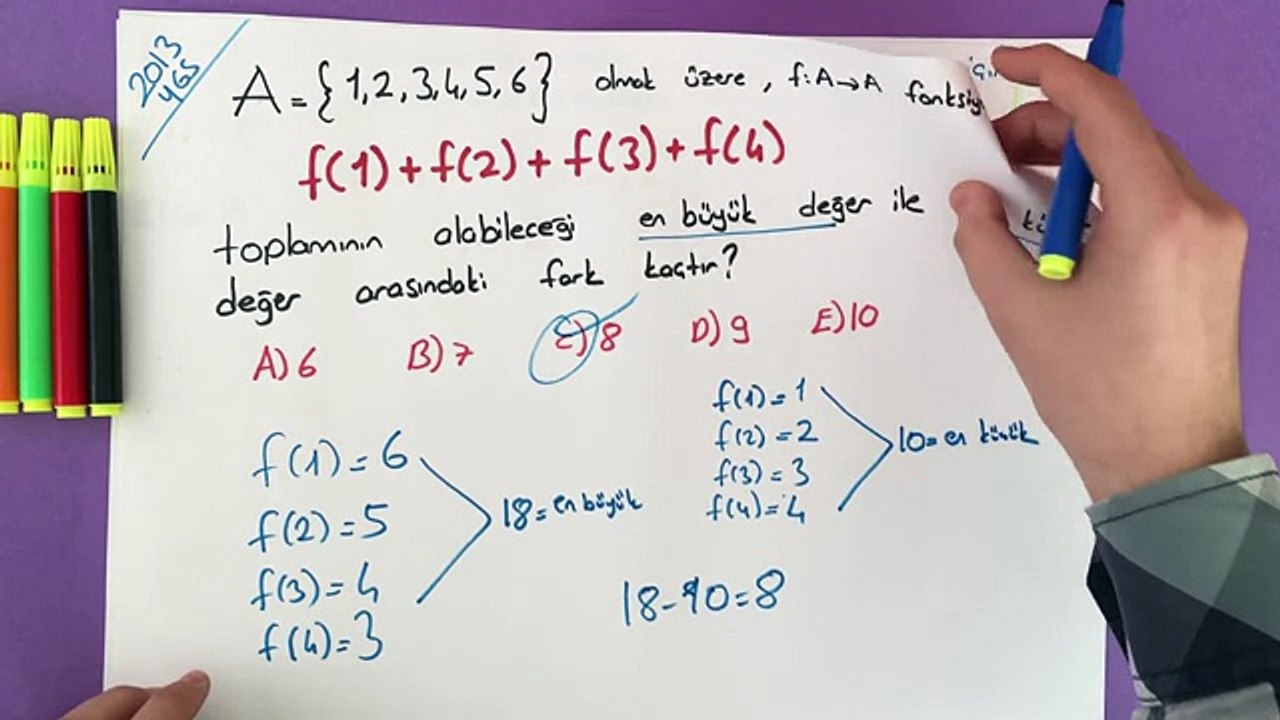 2013
YGS
A = {1,2,3,4,5,6} olmak üzere, f:A→A
f(1)+f(2)+f(3)+f(4)
toplamının alabileceği en büyük değer ile
değer arasındaki fark kaçtır?
A) 6 B) 7 C) 8 D) 9 E) 10
f(1)=6
f(2)=5
f(3)=4
f(4)=3
18=en büyük
f(1)=1
f(2)=2
f(3)=3
f(4)=4
10=en küçük
18-10=8